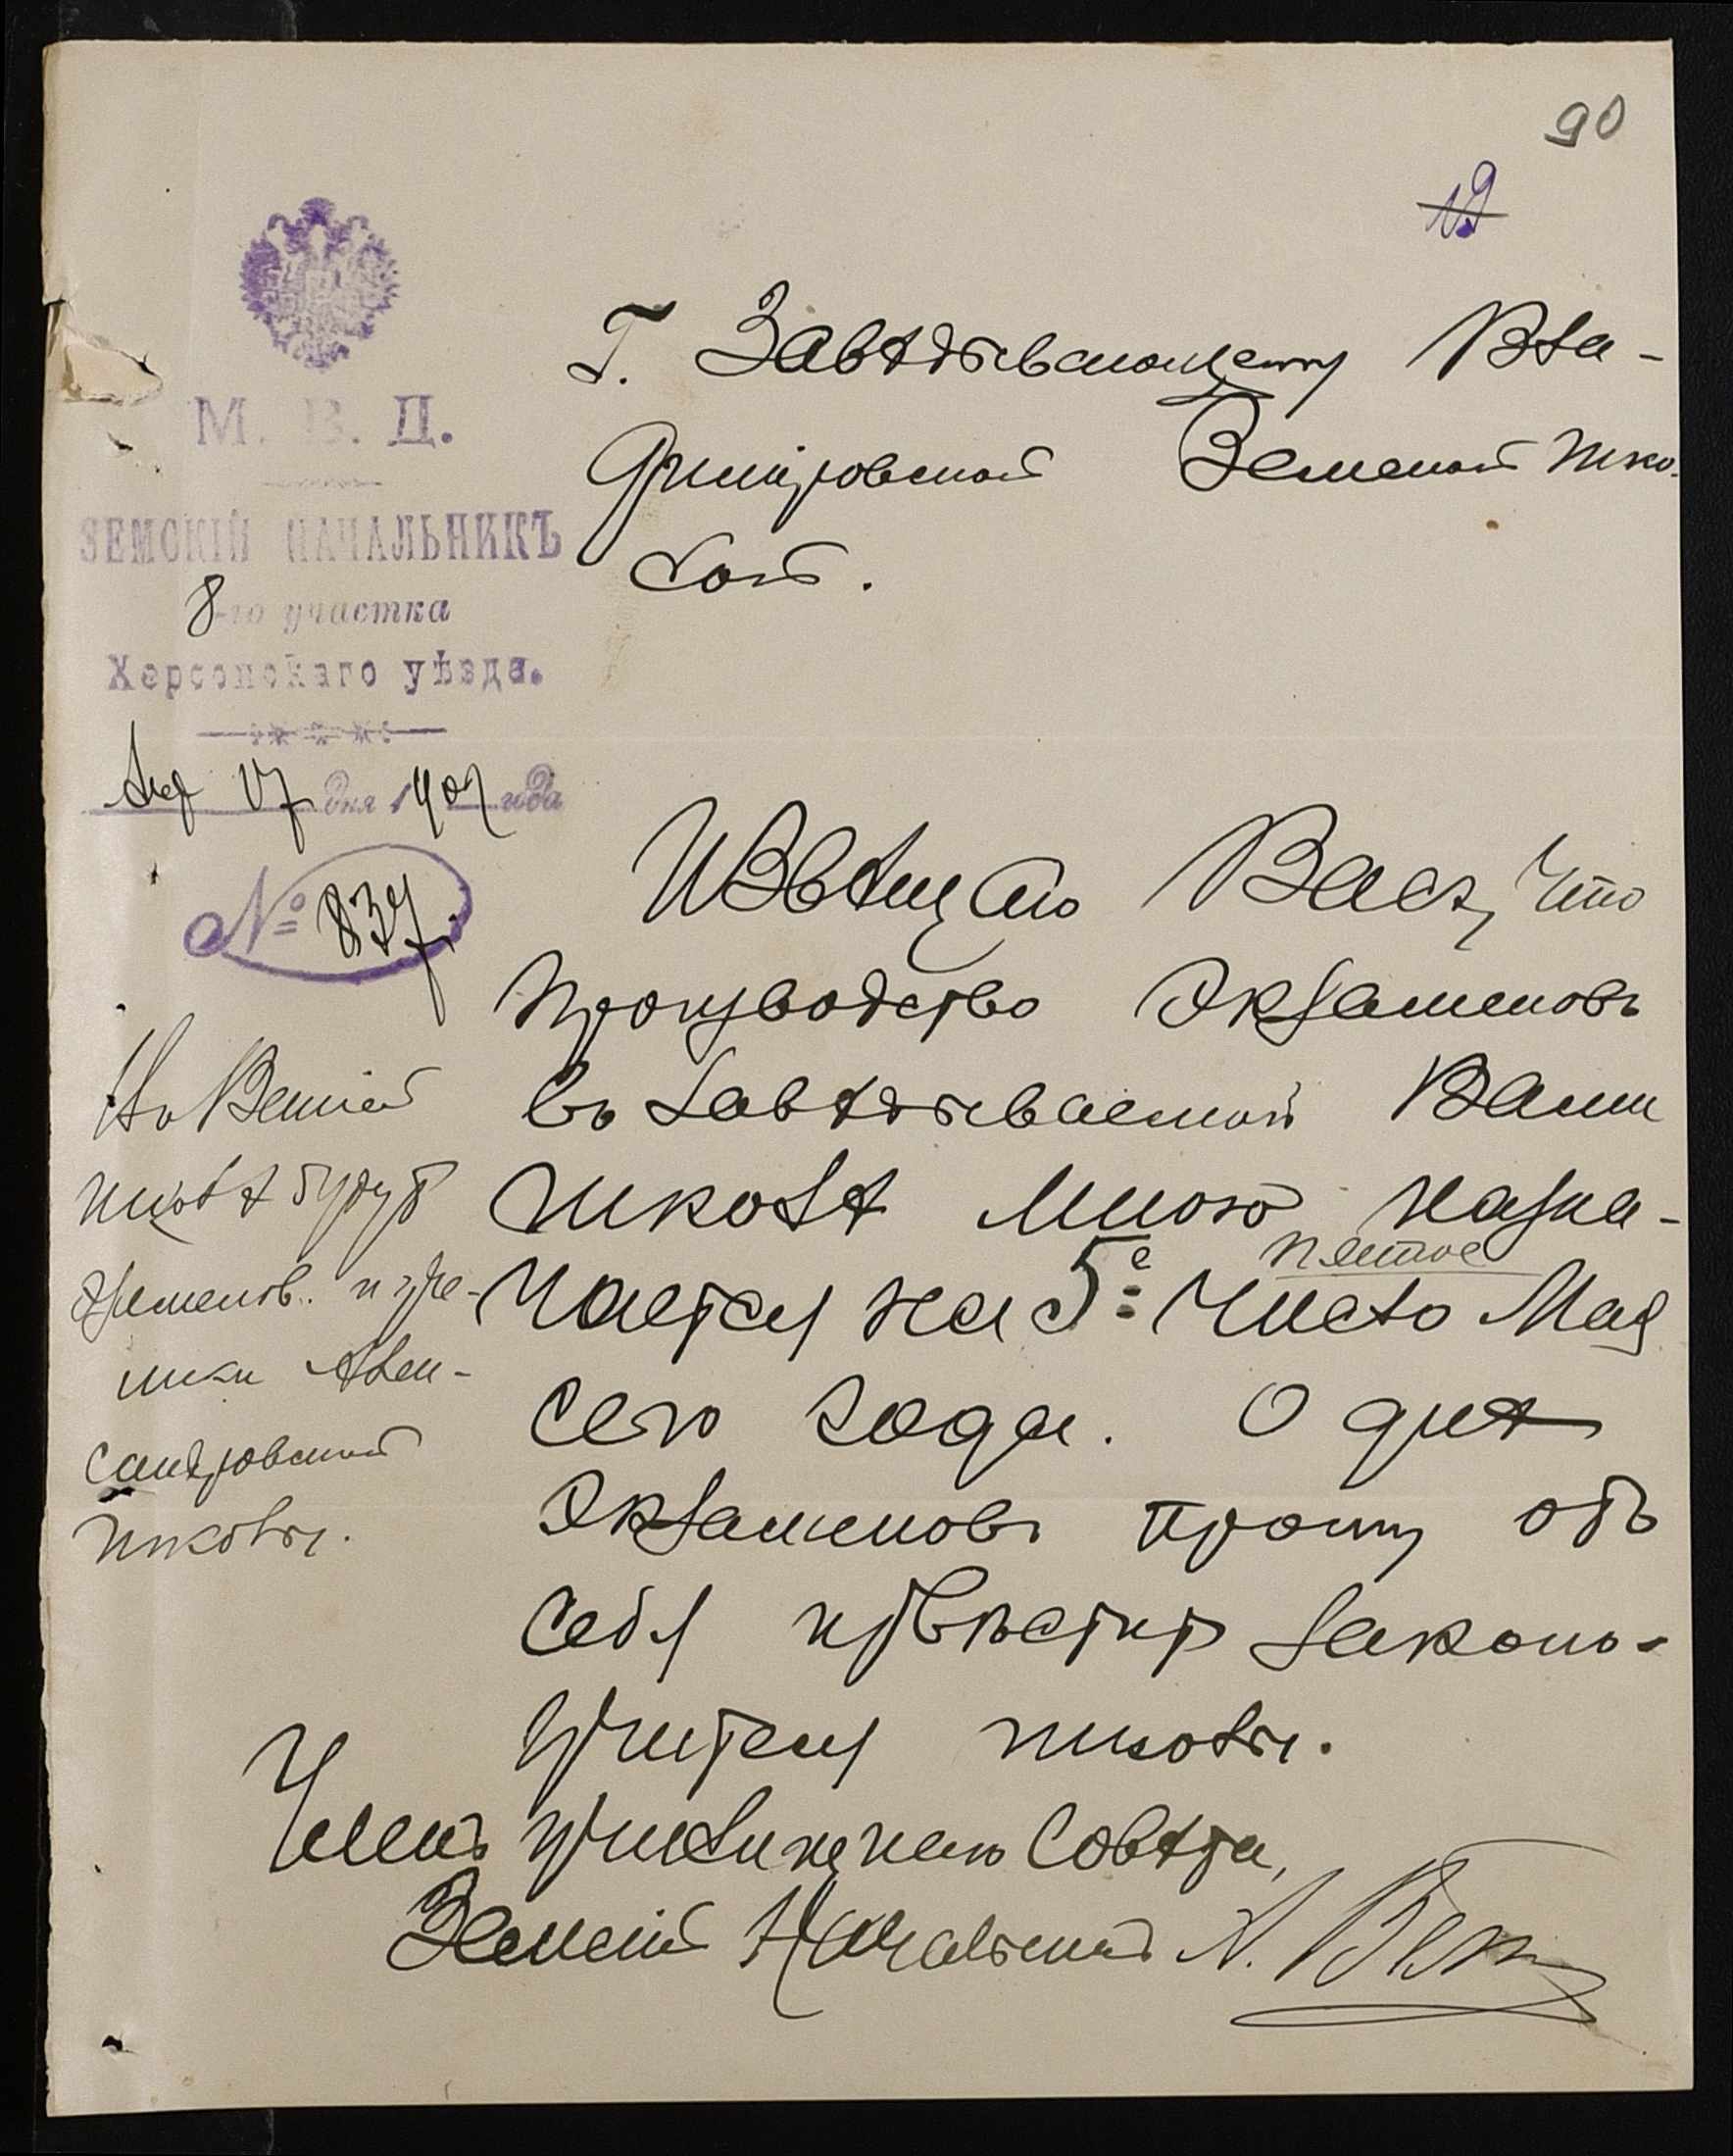 90
19
М. В. Д.
ЗЕМСКІЙ НАЧАЛЬНИКЪ
8-го участка
Херсонскаго уѣзда.
Апр 17 дня 1902 года
№ 837.
Г. Завѣдывающему Вла-
димiровской Земской шко-
лой.
Извѣщаю Васъ, что
производство Экзаменовъ
въ завѣдываемой Вами
школѣ мною назна-
чается на 5е пятое число Мая
сего года. О днѣ
Экзаменовъ прошу отъ
себя извѣстить законо-
учителя школы.
Членъ училищнаго Совѣта,
Земскій Начальникъ А.
Въ Вашей
школѣ будутъ
экзаменов. и уче-
ники Алек-
сандровской
школы.